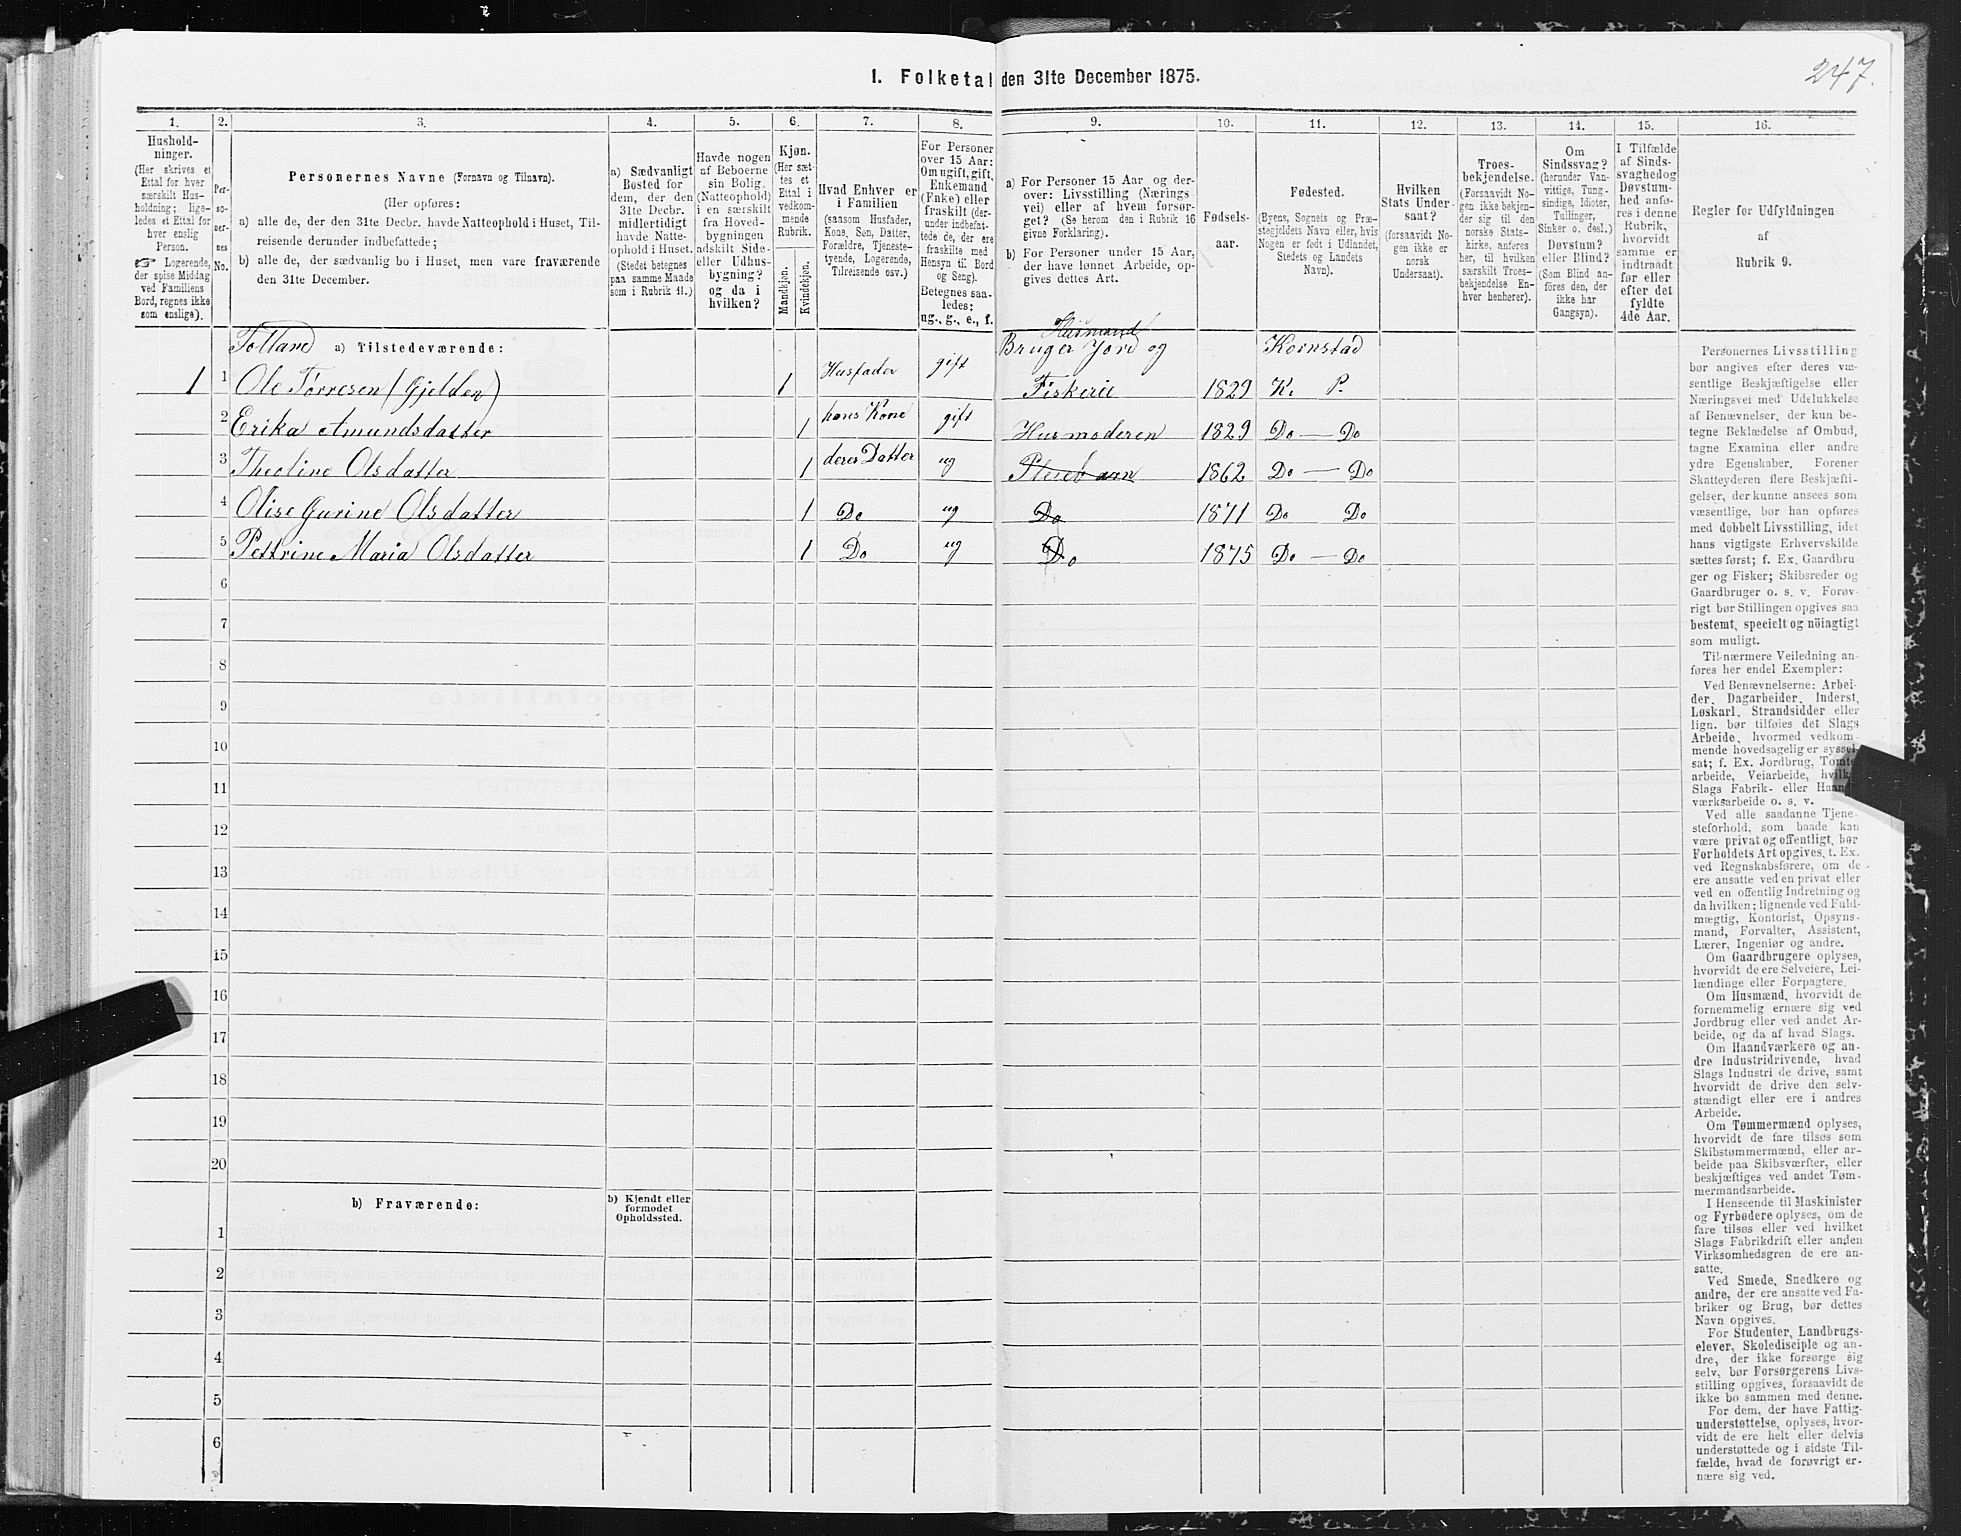 247.
I. Folketal den 31te December 1875.
1. 2. 3. 4. 5. 6. 7. 8. 9. 10. 11. 12. 13. 14. 15. 16.
Hushold-
ninger.
(Her skrives et
Ettal for hver
særskilt Hus-
holdning; lige-
ledes et Ettal for
hver enslig
Person.
☞ Logerende,
der spise Middag
ved Familiens
Bord, regnes ikke
som enslige).
Per-
so-
ner-
nes
No.
Personernes Navne (Fornavn og Tilnavn).
(Her opføres:
a) alle de, der den 31te Decbr. havde Natteophold i Huset, Til-
reisende derunder indbefattede;
b) alle de, der sædvanlig bo i Huset, men vare fraværende
den 31te December.
a) Sædvanligt
Bosted for
dem, der den
31te Decbr.
midlertidigt
havde Natte-
ophold i Huset.
(Stedet betegnes
paa samme Maade
som i Rubrik 11.)
Havde nogen
af Beboerne
sin Bolig
(Natteophold)
i en særskilt
fra Hoved-
bygningen
adskilt Side-
eller Udhus-
bygning?
og da i
hvilken?
Kjøn.
(Her sæt-
tes et
Ettal i
vedkom-
mende
Rubrik.
Mandkjøn.
Kvindekjøn.
Hvad Enhver er
i Familien
(saasom Husfader,
Kone, Søn, Datter,
Forældre, Tjeneste-
tyende, Logerende,
Tilreisende osv.)
For Personer
over 15 Aar:
Om ugift, gift,
Enkemand
(Enke) eller
fraskilt (der-
under indbefat-
tede de, der ere
fraskilte med
Hensyn til Bord
og Seng).
Betegnes saa-
ledes:
ug., g., e., f.
a) For Personer 15 Aar og der-
over: Livsstilling (Nærings-
vei) eller af hvem forsør-
get? (Se herom den i Rubrik 16
givne Forklaring).
b) For Personer under 15 Aar,
der have lønnet Arbeide, op-
gives dettes Art.
Fødsels-
aar.
Fødested.
(Byens, Sognets og Præ-
stegjeldets Navn eller, hvis
Nogen er født i Udlandet,
Stedets og Landets
Navn).
Hvilken
Stats Under-
saat?
(forsaavidt No-
gen ikke er
norsk
Undersaat).
Troes-
bekjendelse.
(Forsaavidt No-
gen ikke bekjen-
der sig til den
norske Stats-
kirke, anføres
her, til hvilken
særskilt Troes-
bekjendelse En-
hver henhører).
Om
Sindssvag?
(herunder Van-
vittige, Tung-
sindige, Idioter,
Tullinger,
Sinker o. desl.)
Døvstum?
eller Blind?
(Som Blind an-
føres den, der
ikke har
Gangsyn).
I Tilfælde
af Sinds-
svaghed og
Døvstum-
hed anfø-
res i denne
Rubrik,
hvorvidt
samme er
indtraadt
før eller
efter det
fyldte
4de Aar.
Regler for Udfyldningen
af
Rubrik 9.
Husmand
Tolland a) Tilstedeværende: Bruger Jord og Kornstad
1 1 Ole Tørresen (Gjelden) 1 Husfader gift Fiskerie 1829 K. P.
2 Erika Amundsdatter 1 hans Kone gift Husmoderen 1829 Do — Do
3 Theoline Olsdatter 1 deres Datter ug Pleiebarn 1862 Do — Do
4 Olise Gurine Olsdatter 1 Do ug Do 1871 Do Do
5 Pettrine Maria Olsdatter 1 Do ug Do 1875 Do — Do
6
7
8
9
10
11
12
13
14
15
16
17
18
19
20
b) Fraværende:
b) Kjendt eller
formodet
Opholdssted.
1
2
3
4
5
6
Personernes Livsstilling
bør angives efter deres væ-
sentlige Beskjæftigelse eller
Næringsvei med Udelukkelse
af Benævnelser, der kun be-
tegne Beklædelse af Ombud,
tagne Examina eller andre
ydre Egenskaber. Forener
Skatteyderen flere Beskjæfti-
gelser, der kunne ansees som
væsentlige, bør han opføres
med dobbelt Livsstilling, idet
hans vigtigste Erhvervskilde
sættes først; f. Ex. Gaardbru-
ger og Fisker; Skibsreder og
Gaardbruger o. s. v. Forøv-
rigt bør Stillingen opgives saa
bestemt, specielt og nöiagtigt
som muligt.
Til nærmere Veiledning an-
føres her endel Exempler:
Ved Benævnelserne: Arbei-
der, Dagarbeider, Inderst,
Løskarl, Strandsidder eller
lign. bør tilføies det Slags
Arbeide, hvormed vedkom-
mende hovedsagelig er syssel-
sat; f. Ex. Jordbrug, Tomte-
arbeide, Veiarbeide, hvilket
Slags Fabrik- eller Haand-
værksarbeide o. s. v.
Ved alle saadanne Tjene-
steforhold, som baade kan
være privat og offentligt, bør
Forholdets Art opgives, t. Ex.
ved Regnskabsførere, om de
ere ansatte ved en privat eller
ved en offentlig Indretning og
da hvilken; lignende ved Fuld-
mægtig, Kontorist, Opsyns-
mand, Forvalter, Assistent,
Lærer, Ingeniør og andre.
Om Gaardbrugere oplyses,
hvorvidt de ere Selveiere, Lei-
lændinge eller Forpagtere.
Om Husmænd, hvorvidt de
fornemmelig ernære sig ved
Jordbrug eller ved andet Ar-
beide, og da af hvad Slags.
Om Haandværkere og an-
dre Industridrivende, hvad
Slags Industri de drive, samt
hvorvidt de drive den selv-
stændigt eller ere i andres
Arbeide.
Om Tømmermænd oplyses,
hvorvidt de fare tilsøs som
Skibstømmermænd, eller ar-
beide paa Skibsværfter, eller
beskjæftiges ved andet Tøm-
mermandsarbeide.
I Henseende til Maskinister
og Fyrbødere oplyses, om de
fare tilsøs eller ved hvilket
Slags Fabrikdrift eller anden
Virksomhedsgren de ere an-
satte.
Ved Smede, Snedkere og
andre, der ere ansatte ved Fa-
briker og Brug, bør dettes
Navn opgives.
For Studenter, Landbrugs-
elever, Skoledisciple og an-
dre, der ikke forsørge sig
selv, bør Forsørgerens Livs-
stilling opgives, forsaavidt de
ikke bo sammen med denne.
For dem, der have Fattig-
understøttelse, oplyses, hvor-
vidt de ere helt eller delvis
understøttede og i sidste Til-
fælde, hvad de forøvrigt er-
nære sig ved.